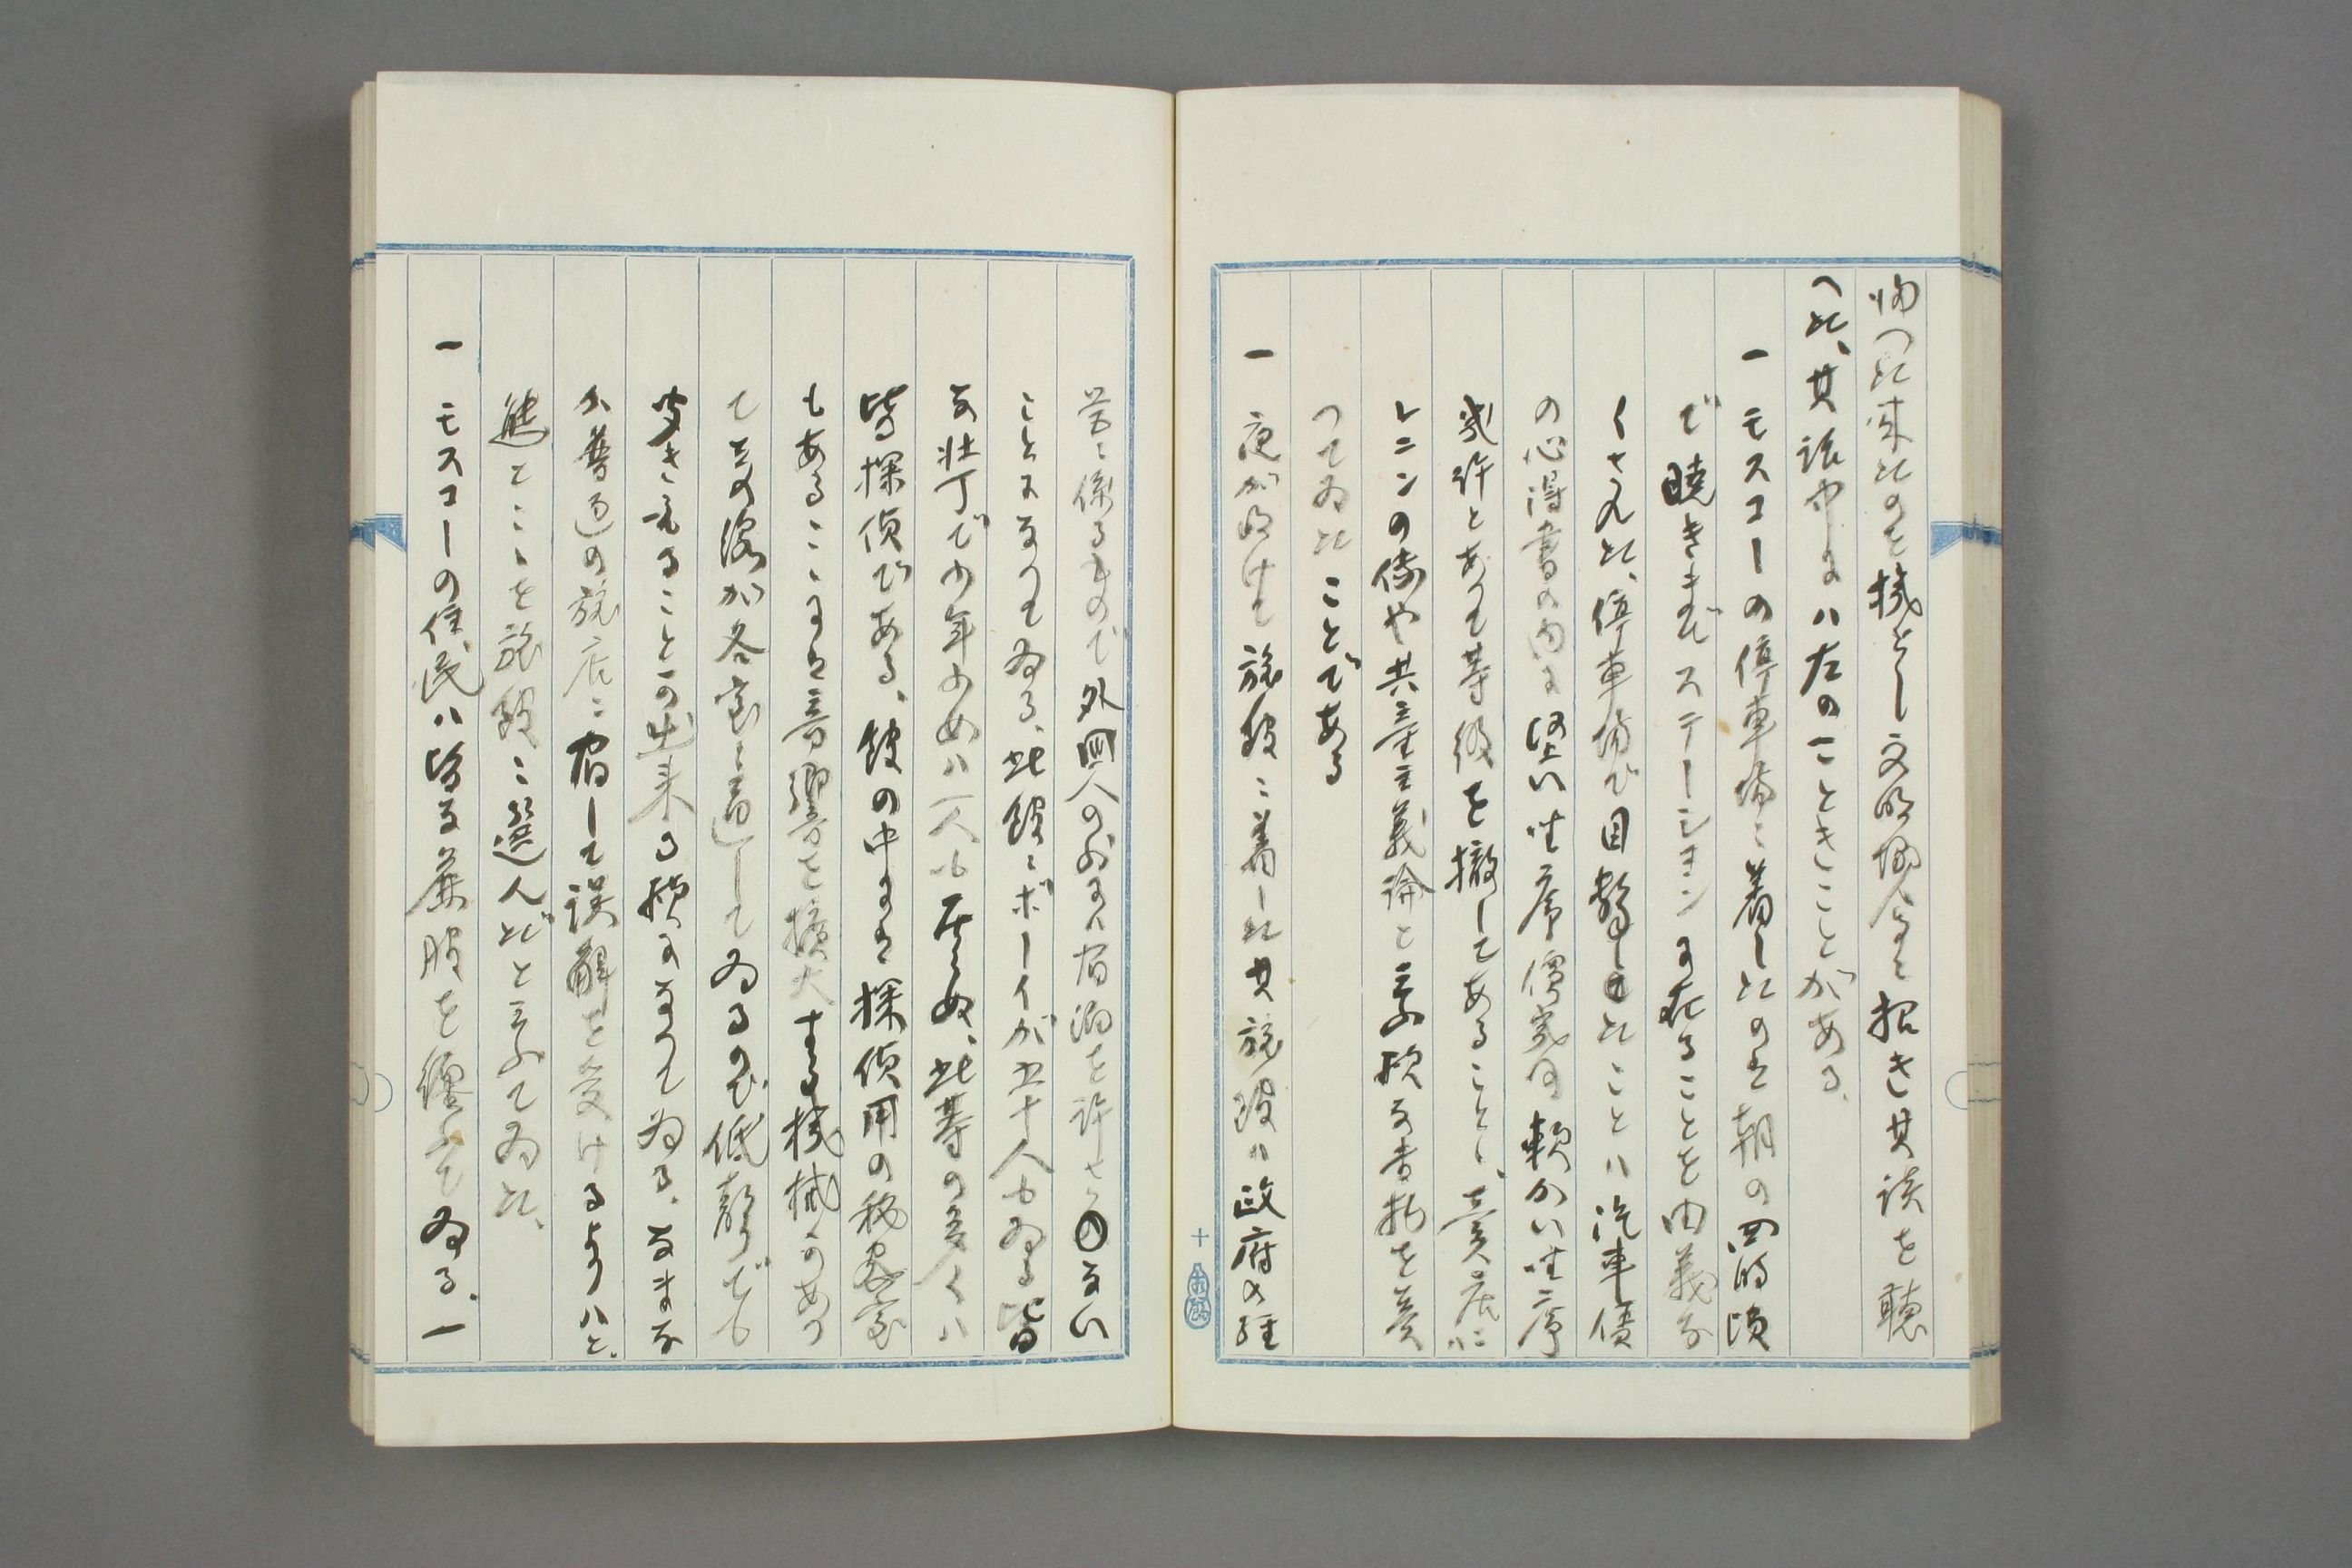 帰つた来たのを機とし文明協会に招き其談を聴
つた、其話中には左のごときことがある、
一 モスコーの停車場に着したのは朝の四時頃
で暁きまでステーションに在ることを由義な
くされた、停車場で目撃したことは汽車賃
の心得書の内に堅い座席価幾何軟かい座席
幾許とあつて等級を撤してあること、売店に
レニンの像や共産主義論と云ふ様な書物を売
つてゐたことである
一 夜が明けて旅館に着した其旅館は政府の経
営に係るもので外国人の外は宿泊を許さない
ことになつてゐる、此館にボーイが五十人もゐる皆
な壮丁で少年少女は一人も居らぬ、此等の多くは
皆探偵である、館の中には探偵用の秘密室
もあるここには音響を拡大する機械があつ
て其の線が各室に通してゐるので低声でも
聞き取ることの出来る様になつてゐる、なまな
か普通の旅店に宿して誤解を受けるよりはと、
態とここを旅館に選んだと云ふてゐた、
一 モスコーの住民は皆な粗服を纏ふてゐる、一
十